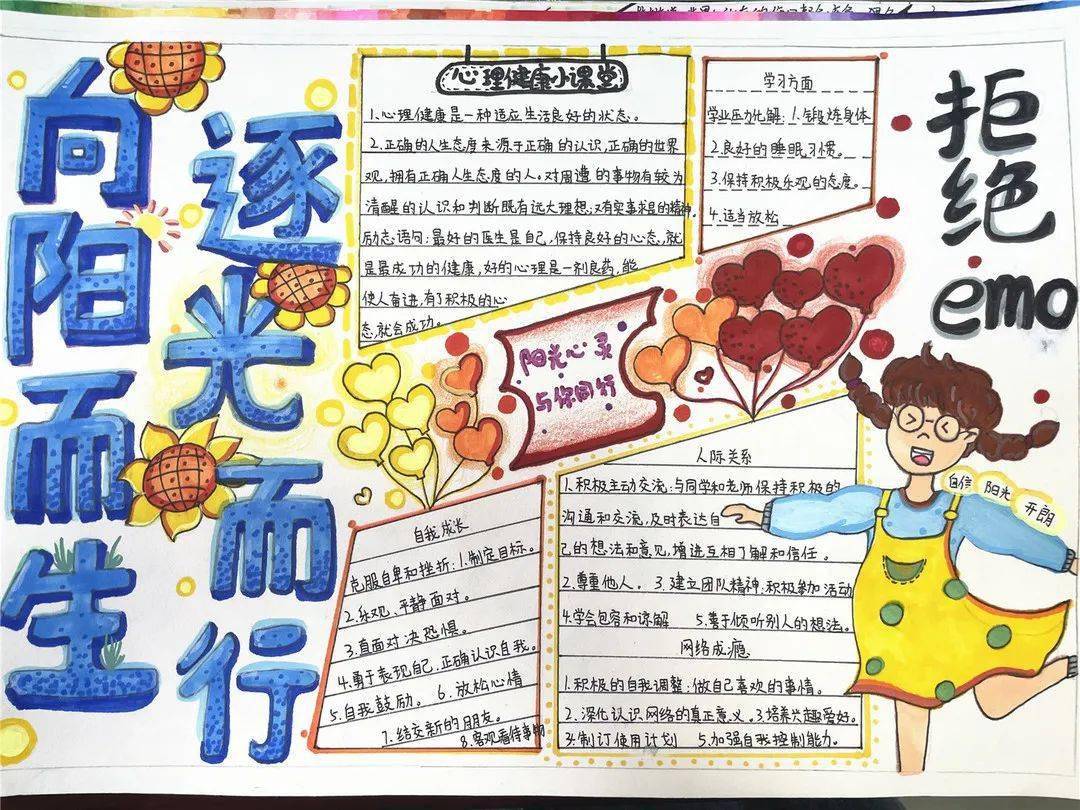 向阳而生
逐光而行
心理健康小课堂
1.心理健康是一种适应生活良好的状态。
2.正确的人生态度来源于正确的认识,正确的世界
观,拥有正确人生态度的人。对周遭的事物有较为
清醒的认识和判断既有远大理想;又有实事求是的精神。
励志语句:最好的医生是自己,保持良好的心态,就
是最成功的健康,好的心理是一剂良药,能
使人奋进,有了积极的心
态,就会成功。
学习方面
学业压力化解:1.锻炼身体
2.良好的睡眠习惯。
3.保持积极乐观的态度。
4.适当放松
拒绝
emo
阳光心灵
与你同行
自我成长
克服自卑和挫折:1.制定目标。
2.乐观,平静面对。
3.直面对决恐惧。
4.勇于表现自己,正确认识自我。
5.自我鼓励。 6.放松心情
7.结交新的朋友。
8.客观看待事物
人际关系
1.积极主动交流:与同学和老师保持积极的
沟通和交流,及时表达自
己的想法和意见,增进互相了解和信任。
2.尊重他人。 3.建立团队精神:积极参加活动
4.学会包容和谅解 5.善于倾听别人的想法。
网络成瘾
1.积极的自我调整:做自己喜欢的事情。
2.深化认识网络的真正意义。3.培养兴趣爱好。
3.制订使用计划 5.加强自我控制能力。
自信 阳光 开朗